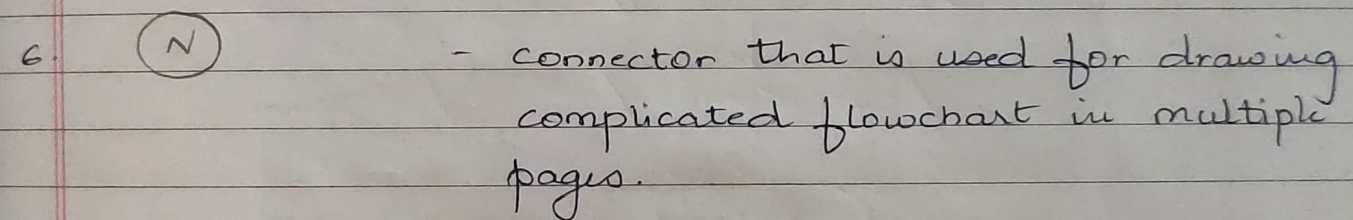 6. N - connector that is used for drawing
complicated flowchart in multiple
pages.